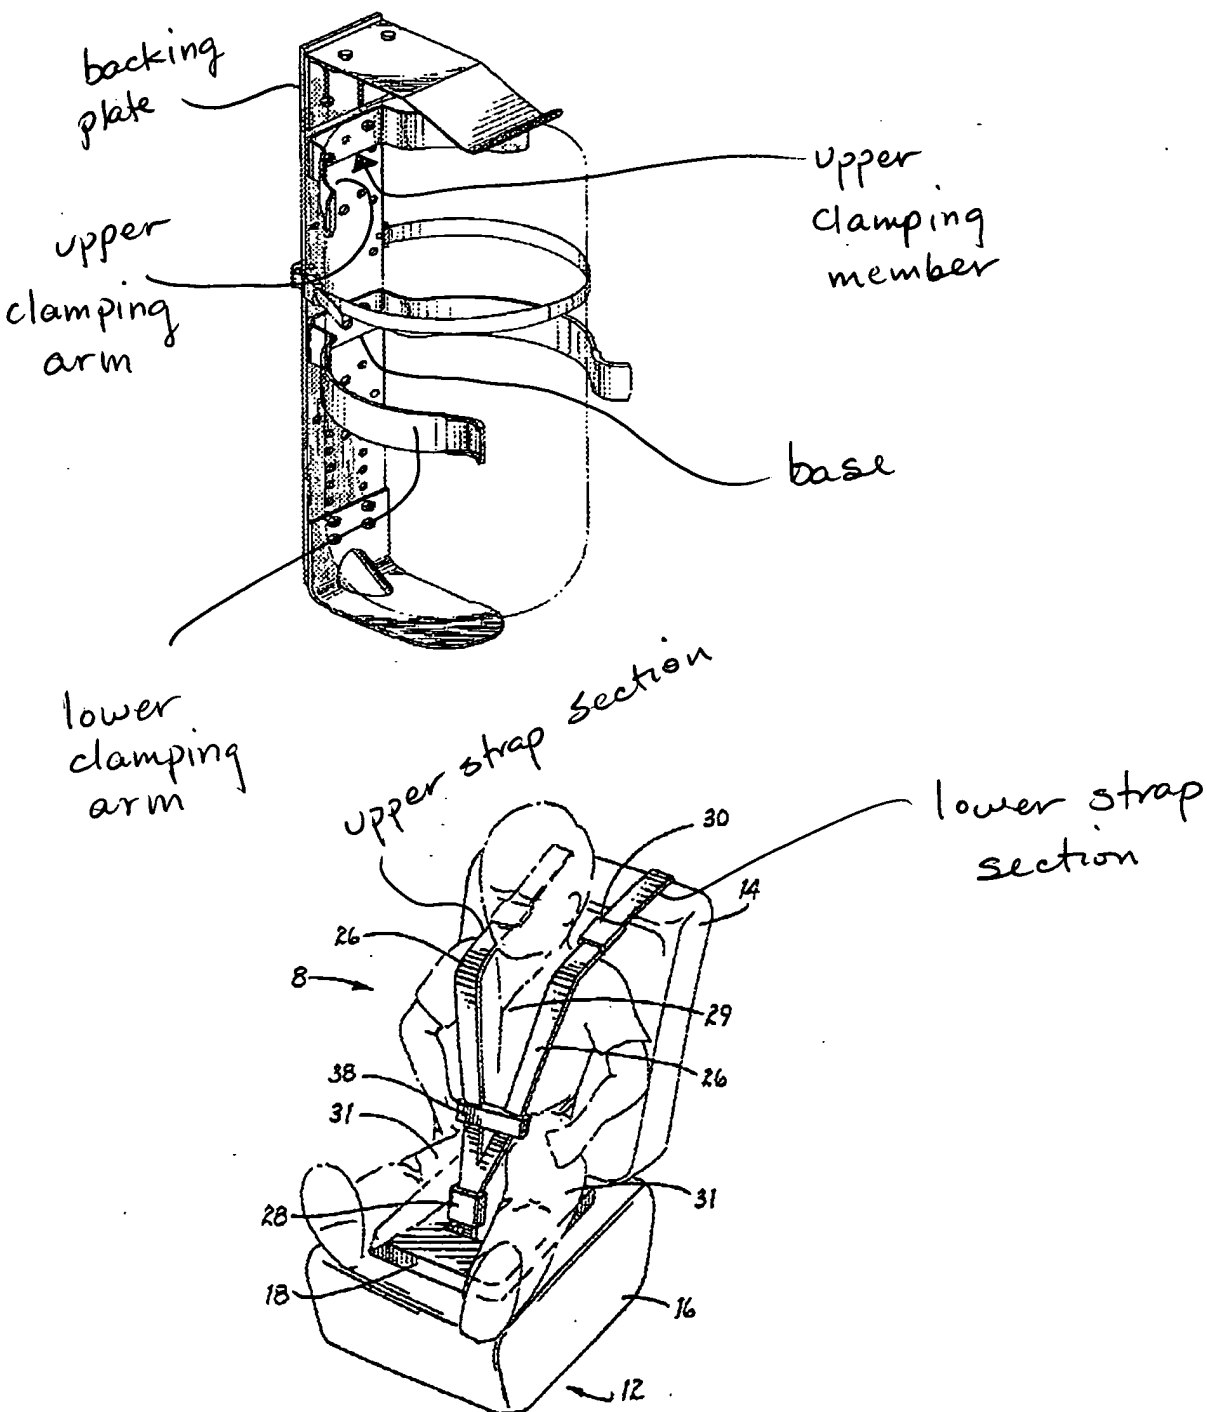 backing
plate
upper
clamping
member
upper
clamping
arm
base
lower
clamping
arm
upper strap section
lower strap
section
30
14
26
8
29
26
38
31
31
28
18
16
12